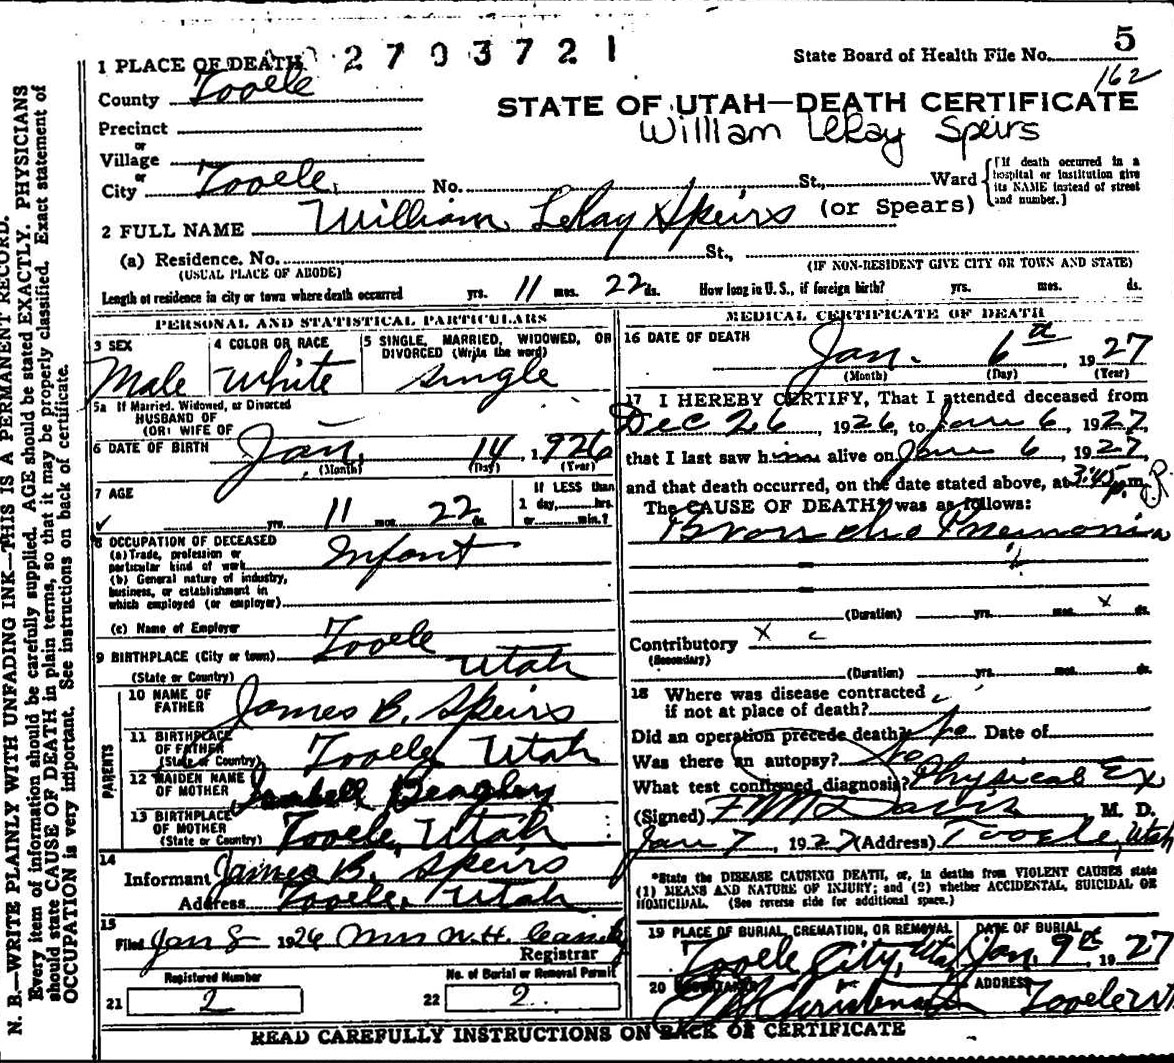 2703721
State Board of Health File No. 5
162
1 PLACE OF DEATH
County Tooele
STATE OF UTAH—DEATH CERTIFICATE
Precinct
William LeRay Speirs
or
Village
or
City Tooele, No. St., Ward
[If death occurred in a hospital or institution give its NAME instead of street and number.]
2 FULL NAME William LeRay Speirs (or Spears)
(a) Residence, No. St.,
(USUAL PLACE OF ABODE) (IF NON-RESIDENT GIVE CITY OR TOWN AND STATE)
Length of residence in city or town where death occurred yrs. 11 mos. 22 ds. How long in U. S., if foreign birth? yrs. mos. ds.
PERSONAL AND STATISTICAL PARTICULARS
3 SEX 4 COLOR OR RACE 5 SINGLE, MARRIED, WIDOWED, OR DIVORCED (Write the word)
Male White Single
5a If Married, Widowed, or Divorced
HUSBAND OF
(OR) WIFE OF
6 DATE OF BIRTH Jan. 14, 1926
(Month) (Day) (Year)
7 AGE If LESS than
yrs. 11 mos. 22 ds. 1 day, hrs.
or min.?
8 OCCUPATION OF DECEASED
(a) Trade, profession or
particular kind of work Infant
(b) General nature of industry,
business, or establishment in
which employed (or employer)
(c) Name of Employer
9 BIRTHPLACE (City or town) Tooele
(State or Country) Utah
PARENTS
10 NAME OF FATHER James B. Speirs
11 BIRTHPLACE OF FATHER (State or Country) Tooele, Utah
12 MAIDEN NAME OF MOTHER Isabell Beagley
13 BIRTHPLACE OF MOTHER (State or Country) Tooele, Utah
14
Informant James B. Speirs
Address Tooele, Utah
15
Filed Jan 8 1926 Mrs W.H.
Registrar
Registered Number No. of Burial or Removal Permit
21 2 22 2
MEDICAL CERTIFICATE OF DEATH
16 DATE OF DEATH Jan. 6th 1927
(Month) (Day) (Year)
17 I HEREBY CERTIFY, That I attended deceased from
Dec 26, 1926, to Jan 6, 1927,
that I last saw him alive on Jan 6, 1927,
and that death occurred, on the date stated above, at 3:45 p. m.
The CAUSE OF DEATH* was as follows:
Broncho Pnemonia
(Duration) yrs. mos. x ds.
Contributory x
(Secondary)
(Duration) yrs. mos. ds.
18 Where was disease contracted
if not at place of death?
Did an operation precede death? No Date of
Was there an autopsy? No
What test confirmed diagnosis? Physical Ex
(Signed) F M Davis M. D.
Jan 7, 1927 (Address) Tooele, Utah
*State the DISEASE CAUSING DEATH, or, in deaths from VIOLENT CAUSES state
(1) MEANS AND NATURE OF INJURY; and (2) whether ACCIDENTAL, SUICIDAL OR
HOMICIDAL. (See reverse side for additional space.)
19 PLACE OF BURIAL, CREMATION, OR REMOVAL DATE OF BURIAL
Tooele City, Utah Jan, 9th, 1927
20 ADDRESS
Tooele
READ CAREFULLY INSTRUCTIONS ON BACK OF CERTIFICATE
N. B.—WRITE PLAINLY WITH UNFADING INK—THIS IS A PERMANENT RECORD.
Every item of information should be carefully supplied. AGE should be stated EXACTLY. PHYSICIANS
should state CAUSE OF DEATH in plain terms, so that it may be properly classified. Exact statement of
OCCUPATION is very important. See instructions on back of certificate.